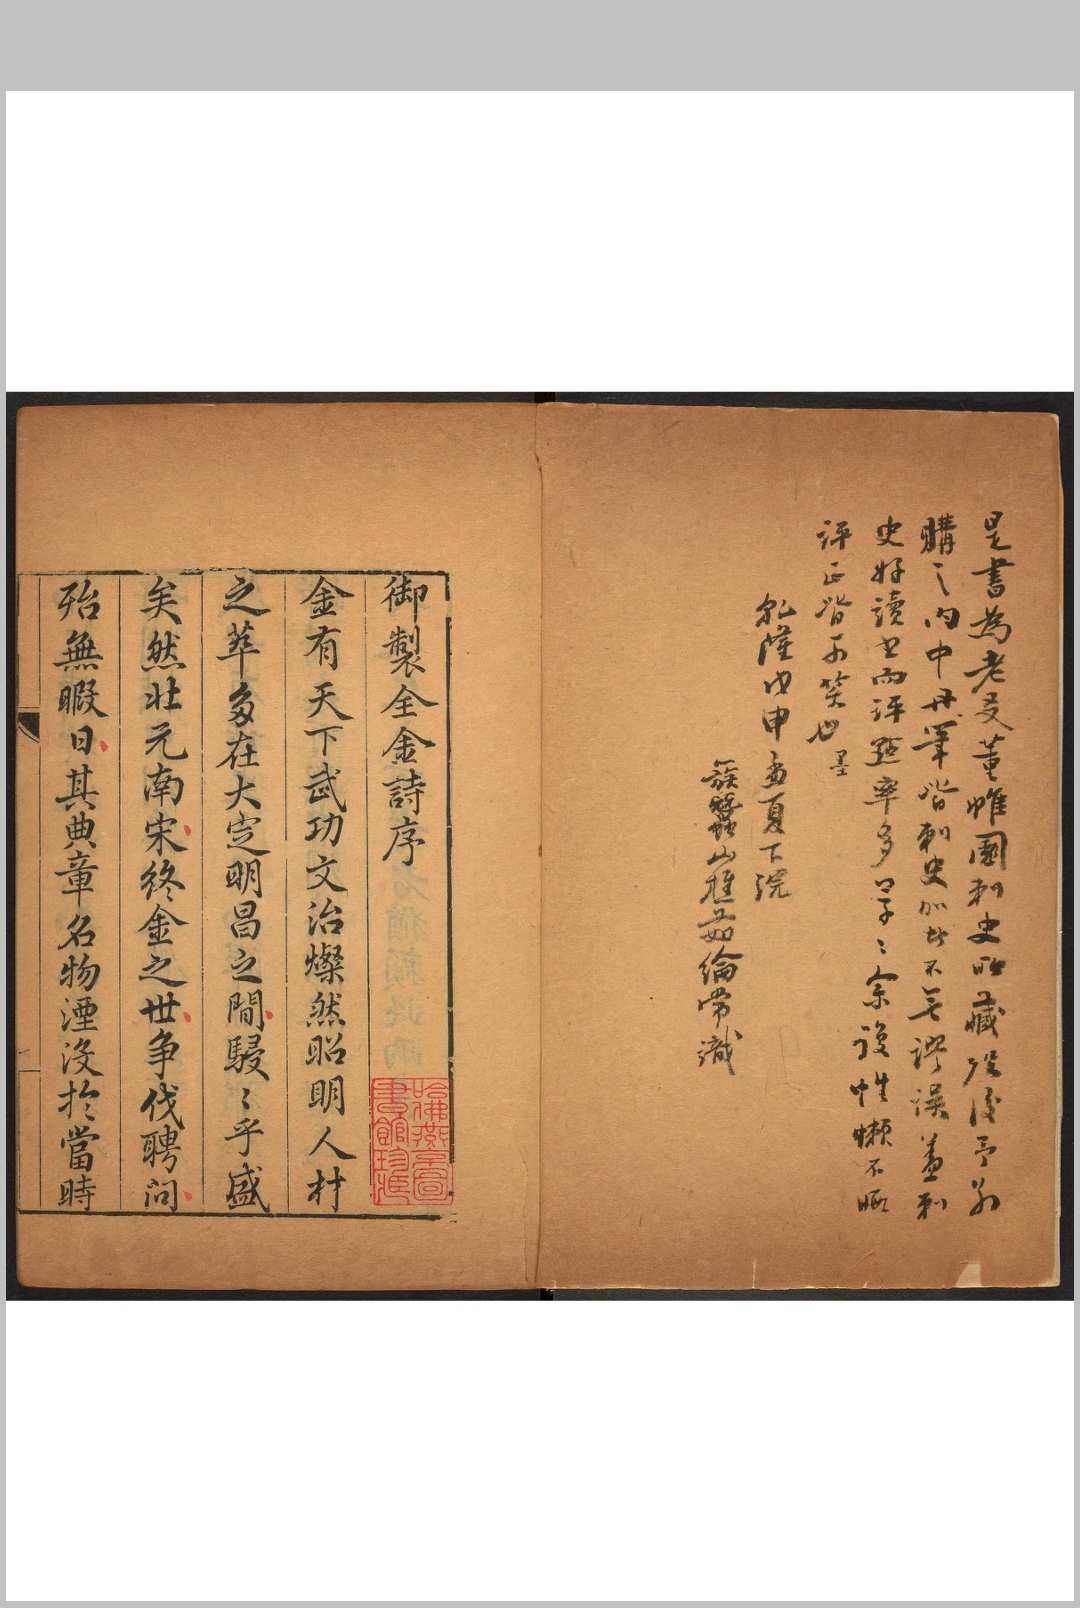 是書為老友董帷園刺史所藏歿後予前
購之內中丹筆皆刺史加此不無謬誤蓋刺
史好讀書而評點率多草〻余復性懶不暇
評正皆可笑也 墨
乾隆戊申孟夏下浣
蔟蠶山樵茹綸常識
御製全金詩序
金有天下武功文治燦然昭明人材
之萃多在大定明昌之間駸〻乎盛
矣然壯元南宋終金之世爭伐聘問
殆無暇日其典章名物湮沒於當時
哈佛燕京圖書館珍藏